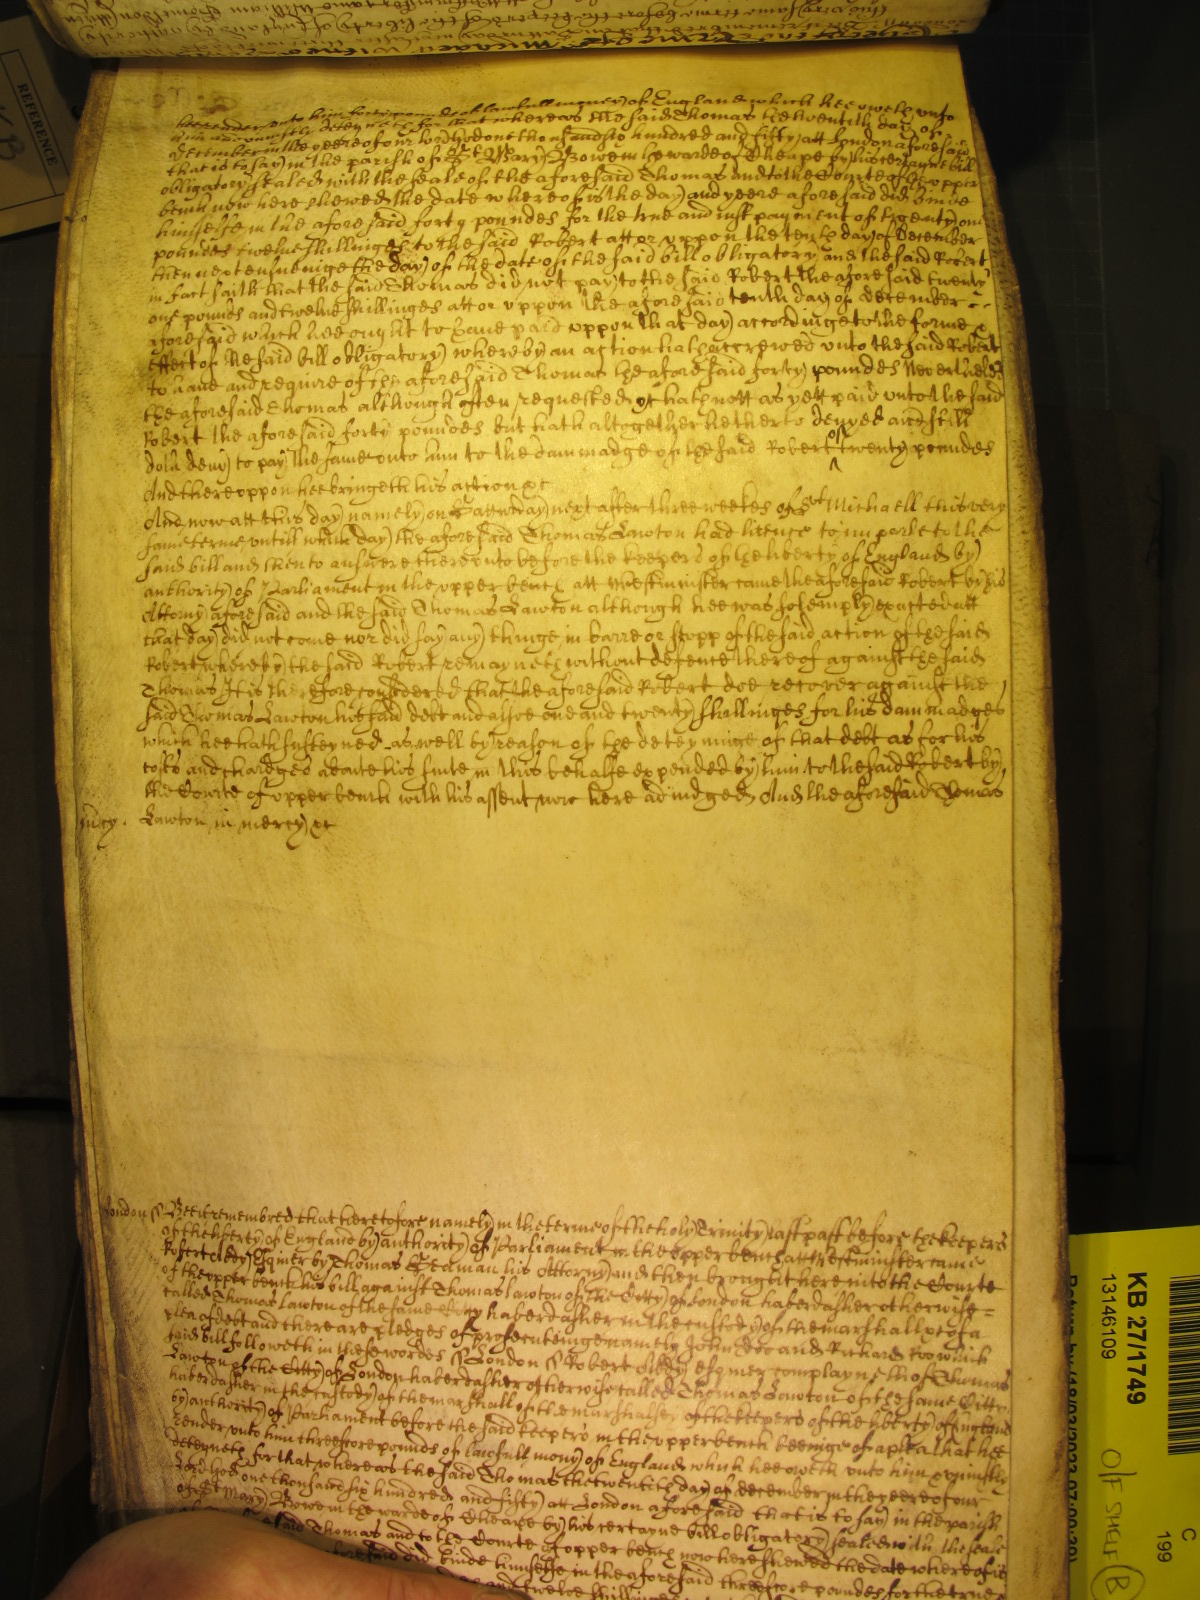 hee render unto him forty pounds of lawfull money of England which hee oweth unto
him and unjustly deteyneth for that whereas the said Thomas the twentith day of
December in the yeere of our Lord one thousand six hundred and fifty att London aforesaid
that is to say in the parish of St Mary Bowe in the warde of Cheape by his certayne bill
obligatory sealed with the seale of the aforesaid Thomas and to the Courte of the upper
bench now here shewed the date whereof is the day and yeere aforesaid did binde
himselfe in the aforesaid forty poundes for the true and just payment of twenty one
poundes twelve shillinges to the said Robert att or uppon the tenth day of December
then next ensueinge the day of the date of the said bill obligatory and the said Robert
in fact saith that the said Thomas did not pay to the said Robert the aforesaid twenty
one poundes and twelve shillinges att or uppon the aforesaid tenth day of december
aforesaid which hee ought to have paid uppon that day accordinge to the forme &
effect of the said bill obligatory whereby an action hath accrewed unto the said Robert
to have and require of the aforesaid Thomas the aforesaid forty poundes Neverthelesse
the aforesaid Thomas although often requested &c hath nott as yett paid unto the said
Robert the aforesaid forty poundes but hath altogether hetherto denyed and still
doth deny to pay the same unto him to the dammadge of the said Robert of twenty poundes
And thereuppon hee bringeth his action &c
And now att this day namely on Satturday next after three weekes of St Michaell this very
same terme untill which day the aforesaid Thomas Lawton had licence to imparle to the
said bill and then to answere thereunto before the keepers of the liberty of England by
authority of Parliament in the upper bench att Westminster came the aforesaid Robert by his
Attorny aforesaid and the said Thomas Lawton although hee was solemply exacted att
that day did not come nor did say any thinge in barre or stopp of the said action of the said
Robert whereby the said Robert remayneth without defence thereof against the said
Thomas It is therefore considered that the aforesaid Robert doe recover against the
said Thomas Lawton his said debt and alsoe one and twenty shillinges for his dammadges
which hee hath susteyned as well by reason of the deteyninge of that debt as for his
costs and chardges aboute his suite in this behalfe expended by him to the said Robert by
the Courte of upper bench with his assent now here adjudged And the aforesaid Thomas
mcy. Lawton in mercy &c
London ss Bee it remembred that heretofore namely in the terme of the holy Trinity last past before the keepers
of the liberty of England by authority of Parliament in the upper bench att Westminster came
Robert Esquier by Thomas his Attorny and then brought here into the Courte
of the upper bench his bill against Thomas Lawton of the Citty of London haberdasher otherwise
called Thomas Lawton of the same Citty haberdasher in the custody of the marshall &c of a
plea of debt and there are pledges of prosecutinge namely John Doe and Richard Roo which
said bill followeth in these wordes ss London ss Robert esquier complayneth of Thomas
Lawton of the Citty of London haberdasher otherwise called Thomas Lawton of the same Citty
haberdasher in the custody of the marshall of the marshalsey of the keepers of the liberty of England
by authority of Parliament before the said keepers in the upper bench beeinge of a plea that hee
render unto him threescore pounds of lawfull mony of England which hee oweth unto him & unjustly
deteyneth for that whereas the said Thomas the twentith day of december in the yeere of our
Lord God one thousand six hundred and fifty att London aforesaid that is to say in the parish
of St Mary Bowe in the warde of Cheape by his certayne bill obligatory sealed with the seale
said Thomas and to the Courte of upper bench now here shewed the date whereof is
aforesaid did binde himselfe in the aforesaid threescore poundes for the true
and twelve shillinges
REFERENCE
KB 27/1749
13146109
C
199
Off Shelf (B)